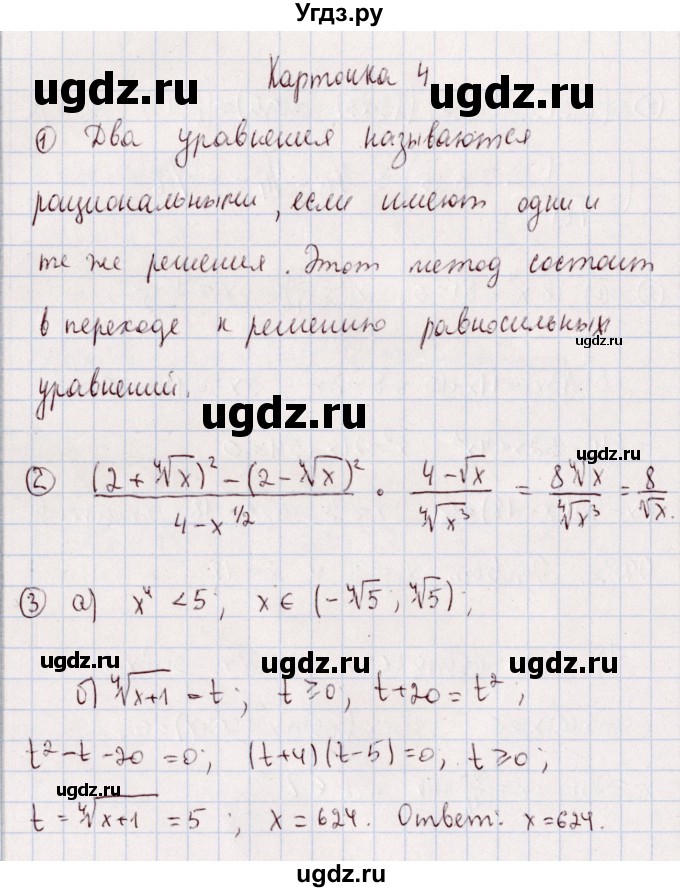 Угдз.ру
Карточка 4
ugdz.ru ugdz.ru
① Два уравнения называются
рациональными, если имеют одни и
те же решения. Этот метод состоит
в переходе к решению равносильных
ugdz.ru
уравнений.
ugdz.ru
② ((2+⁴√x)² - (2-⁴√x)²)/(4-x^(1/2)) · (4-√x)/(⁴√x³) = (8⁴√x)/(⁴√x³) = 8/√x.
③ а) x⁴ < 5; x ∈ (-⁴√5, ⁴√5);
ugdz.ru ugdz.ru ugdz.ru
б) ⁴√(x+1) = t; t ≥ 0, t+20 = t²;
t² - t - 20 = 0; (t+4)(t-5) = 0, t ≥ 0;
ugdz.ru ugdz.ru
t = ⁴√(x+1) = 5; x = 624. Ответ: x = 624.
ugdz.ru